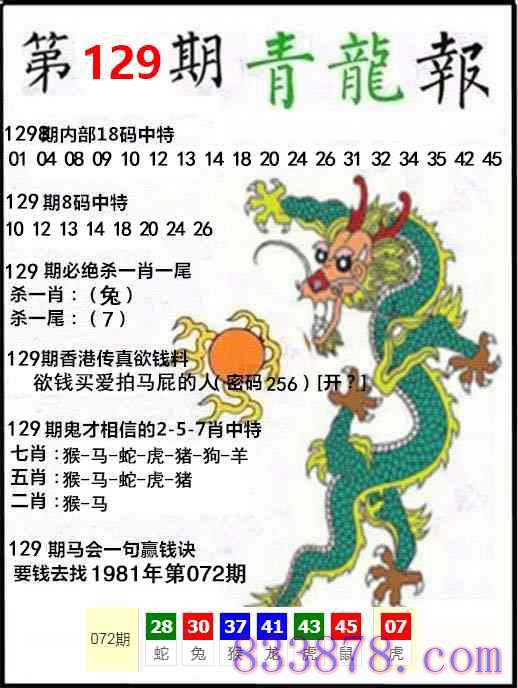 第129期青龍報
129期内部18码中特
01 04 08 09 10 12 13 14 18 20 24 26 31 32 34 35 42 45
129期8码中特
10 12 13 14 18 20 24 26
129期必绝杀一肖一尾
杀一肖：（兔）
杀一尾：（7）
129期香港传真欲钱料
欲钱买爱拍马屁的人(密码256)[开？]
129期鬼才相信的2-5-7肖中特
七肖：猴-马-蛇-虎-猪-狗-羊
五肖：猴-马-蛇-虎-猪
二肖：猴-马
129期马会一句赢钱诀
要钱去找1981年第072期
072期 28 30 37 41 43 45 07
蛇 兔 猴 龙 虎 鼠 虎
833878.com